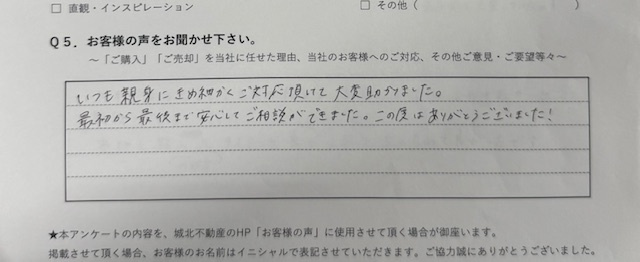 □ 直観・インスピレーション　□ その他（　　）
Q5．お客様の声をお聞かせ下さい。
～「ご購入」「ご売却」を当社に任せた理由、当社のお客様へのご対応、その他ご意見・ご要望等々～
いつも親身にきめ細かくご対応頂けて大変助かりました。
最初から最後まで安心してご相談ができました。この度はありがとうございました！
★本アンケートの内容を、城北不動産のHP「お客様の声」に使用させて頂く場合が御座います。
掲載させて頂く場合、お客様のお名前はイニシャルで表記させていただきます。ご協力誠にありがとうございました。